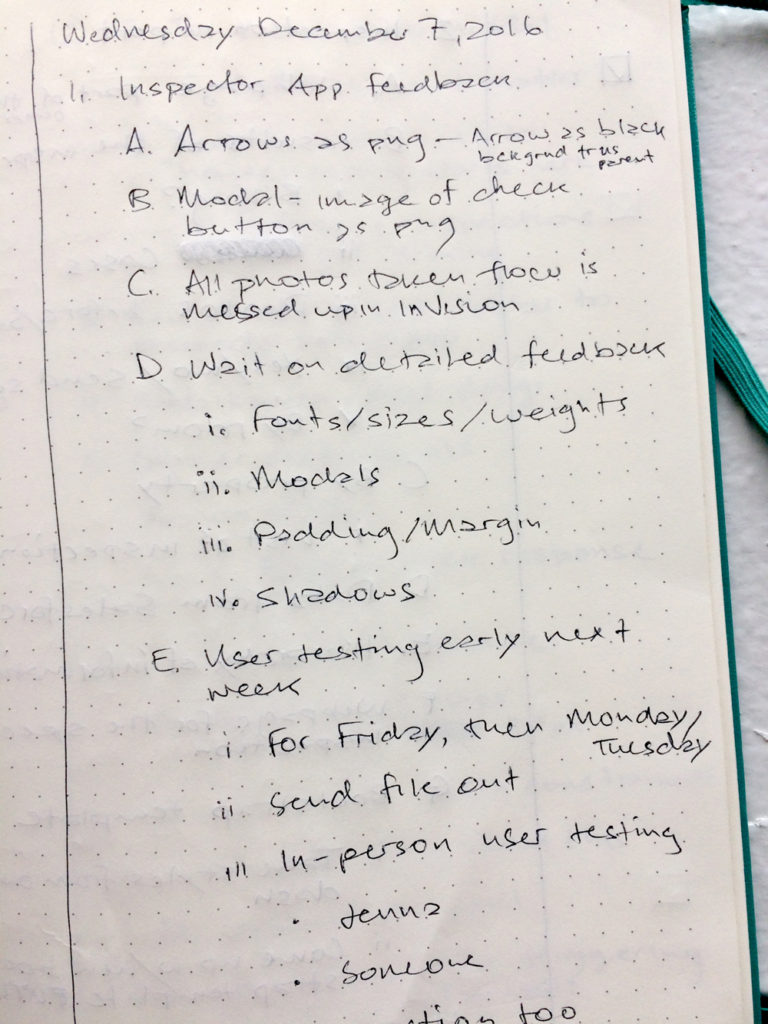 Wednesday December 7, 2016
1. Inspector App feedback
A. Arrows as png - Arrow as black
bckgrnd trns
parent
B. Modal - image of check
button as png
C. All photos taken flow is
messed up in InVision
D Wait on detailed feedback
i. Fonts/sizes/weights
ii. Modals
iii. Padding/Margin
iv. Shadows
E. User testing early next
week
i For Friday, then Monday/
Tuesday
ii send file out
iii In-person user testing
• Jenna
• Someone
too